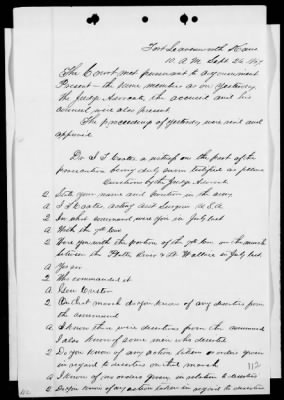 Fort Leavenworth Kans
10 A M Sept 26 1867
The Court met pursuant to adjournment
Present — the same members as on yesterday
the Judge Advocate, the accused and his
counsel were also present
The proceedings of yesterday were read and
approved
Dr I T Coates a witness on the part of the
prosecution being duly sworn testified as follows
Questions by the Judge Advocate
Q State your name and position in the army
A I T Coates acting asst Surgeon U.S.A
Q In what command were you in July last
A With the 7th Cav
Q Were you with the portion of the 7th Cav on the march
between the Platte River & Ft Wallace in July last
A Yes sir
Q Who commanded it
A Gen Custer
Q On that march do you know of any desertions from
the command
A I know there were desertions from the command
I also know of some men who deserted
Q Do you know of any action taken or orders given
in regard to deserters on that march
A I know of no orders given in relation to deserters
Q Do you know of any action taken in regard to deserters
112
112